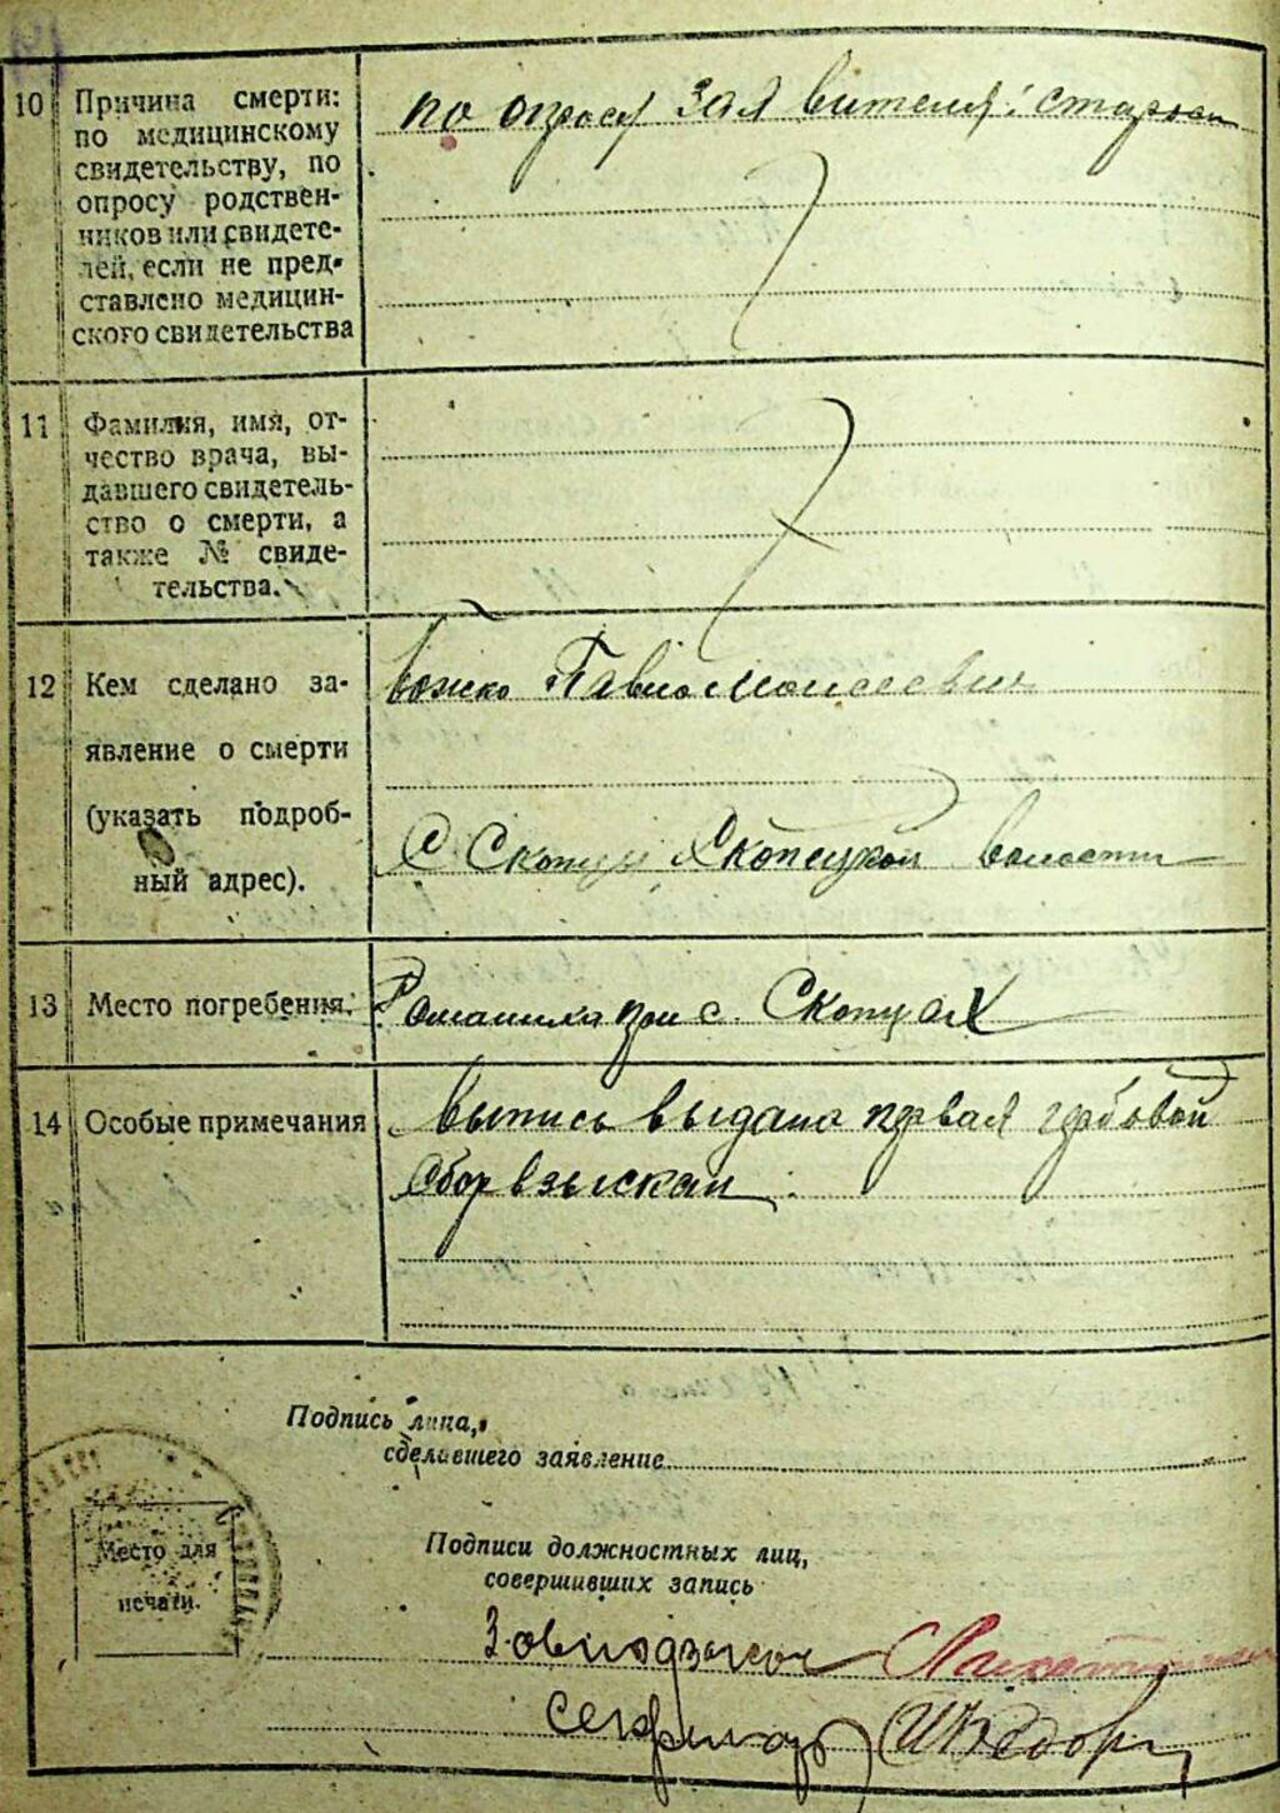 10 Причина смерти:
по медицинскому
свидетельству, по
опросу родствен-
ников или свидете-
лей, если не пред-
ставлено медицин-
ского свидетельства
по опросу заявителя:
11 Фамилия, имя, от-
чество врача, вы-
давшего свидетель-
ство о смерти, а
также № свиде-
тельства.
12 Кем сделано за-
явление о смерти
(указать подроб-
ный адрес).
Божко Павло Моисеевич
С. Скопцы Скопецкой волости
13 Место погребения.
при с. Скопцах
14 Особые примечания
Выпись выдана первая гербовой
сбор взыскан
Подпись лица,
сделавшего заявление
Место для
печати.
Подписи должностных лиц,
совершивших запись
Секретарь